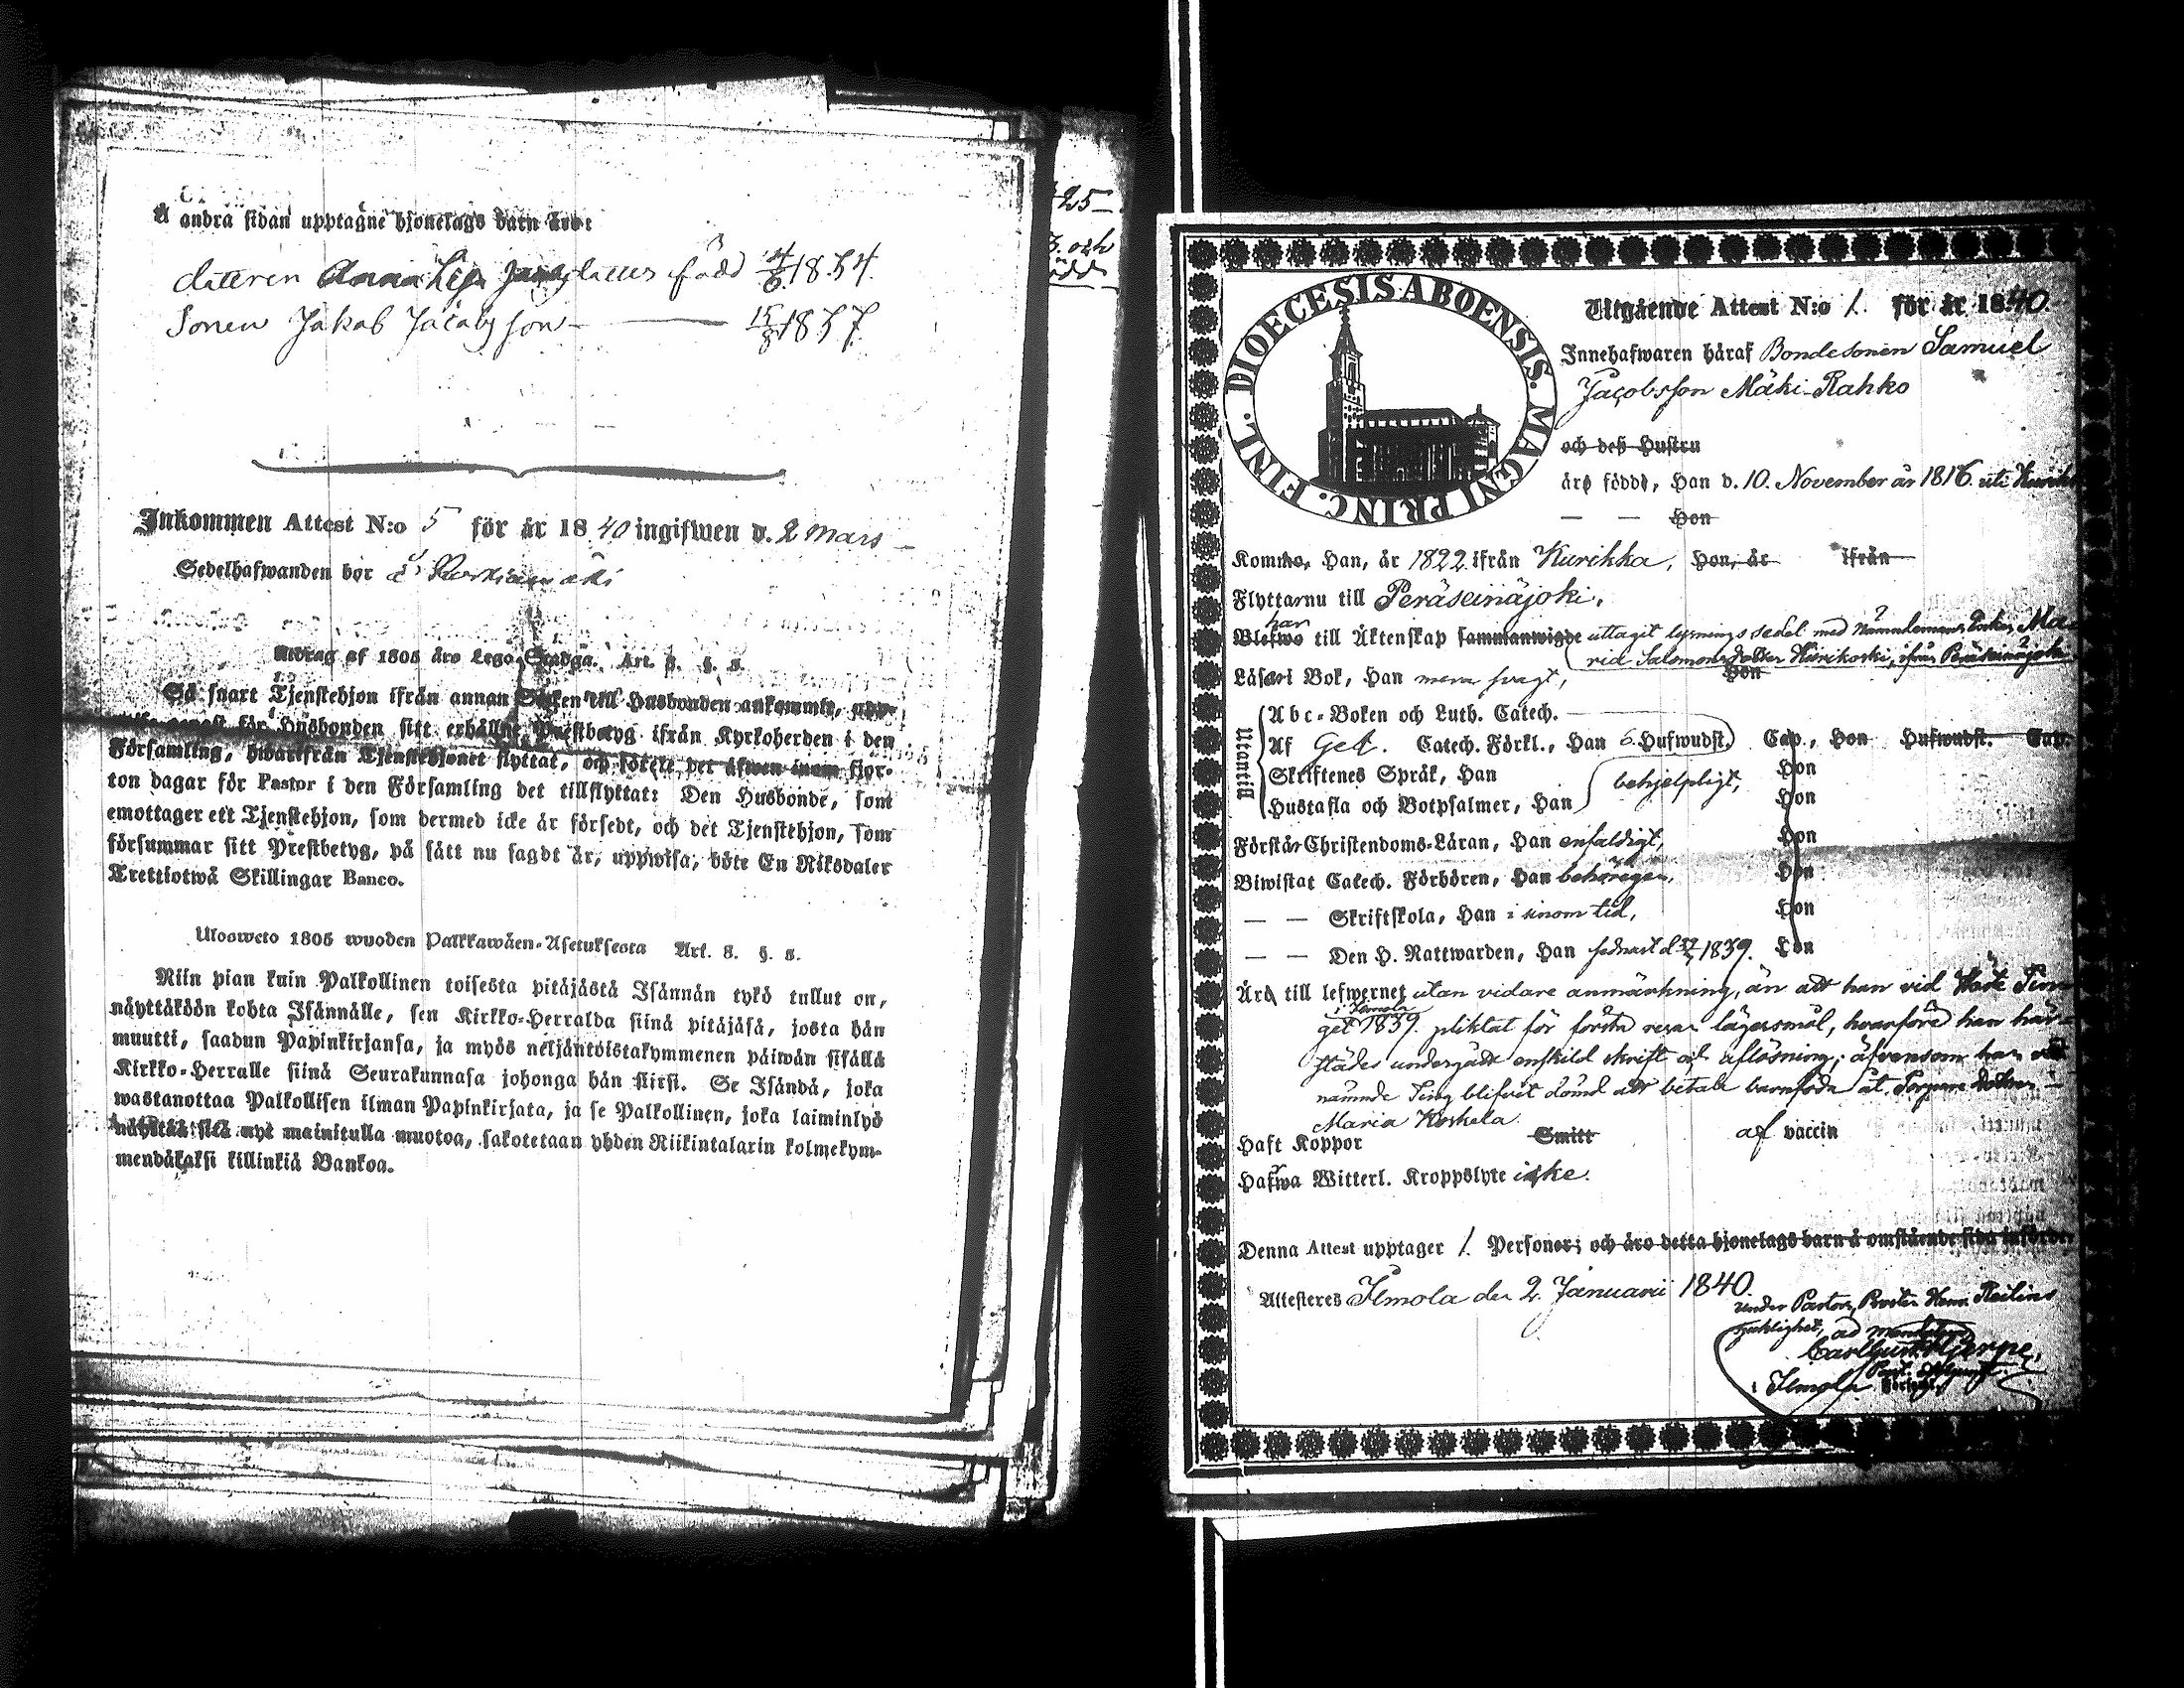 Å andra sidan upptagne hjonelags barn äro:
dåtteren Anna Lisa född 4/6 1834.
Sonen Jakob Jacobsson — 15/8 1837
Inkommen Attest N:o 5 för år 1840 ingifwen d. 2 Mars
Sedelhafwanden bor å
Utdrag af 1805 års Lego-Stadga. Art. 8. §. 8.
Så snart Tjenstehjon ifrån annan Socken till Husbonden ankommit,
för Husbonden sitt erhållne Prestbetyg ifrån Kyrkoherden i den
Församling, hwarifrån Tjenstehjonet flyttat, och förete det äfwen inom fjor-
ton dagar för Pastor i den Församling det tillflyttat: Den Husbonde, som
emottager ett Tjenstehjon, som dermed icke är försedt, och det Tjenstehjon, som
försummar sitt Prestbetyg, på sätt nu sagdt är, uppwisa, böte En Riksdaler
Trettiotwå Skillingar Banco.
Ulosweto 1805 wuoden Palkkawäen-Asetuksesta Art. 8. §. 8.
Niin pian kuin Palkollinen toisesta pitäjästä Isännän tykö tullut on,
näyttäköön kohta Isännälle, sen Kirkko-Herralda siinä pitäjäsä, josta hän
muutti, saadun Papinkirjansa, ja myös neljäntoistakymmenen päiwän sisällä
Kirkko-Herralle siinä Seurakunnasa johonga hän siirsi. Se Isändä, joka
wastanottaa Palkollisen ilman Papinkirjata, ja se Palkollinen, joka laiminlyö
näyttää sitä nyt mainitulla muotoa, sakotetaan yhden Riikintalarin kolmekym-
mendäkaksi killinkiä Bankoa.
25
3. och
födde
DIOECESIS ABOENSIS. MAGNI PRINC. FINL.
Utgående Attest N:o 1. för år 1840.
Innehafwaren häraf Bondesonen Samuel
Jacobsson Mäki-Rahko
och deß Hustru
äro födde, Han d. 10. November år 1816. uti Kurikka
— — Hon
Komne, Han, år 1822 ifrån Kurikka, Hon, år ifrån
Flyttarnu till Peräseinäjoki,
har
Blefwo till Äktenskap sammanwigde uttagit lysnings sedel med Nämndemans Dotter Ma-
rid Salomonsdotter Kurikoski, ifrån Peräseinäjoki
Läsa i Bok, Han mera svagt, Hon
Utantill
Abc-Boken och Luth. Catech.
Af Gez. Catech. Förkl., Han 6. Hufwudst. Cap., Hon Hufwudst. Cap.
Skriftenes Språk, Han behjelpligt, Hon
Hustafla och Botpsalmer, Han Hon
Förstår Christendoms-Läran, Han enfaldigt, Hon
Biwistat Catech. Förhören, Han behörigen, Hon
— — Skriftskola, Han i sinom tid, Hon
— — Den H. Nattwarden, Han sednast d. 1839. Hon
Äro till lefwernet utan vidare anmärkning, än att han vid Höste Tin-
i Ilmola
get 1839. pliktat för första resan lägersmål, hvarföre han här-
städes undergådt enskild skrift och aflösning; äfvensom han vid
nämnde Ting blifvit dömd att betala barnföda åt Torpare dottren
Maria Koskela.
Haft Koppor Smitt af vaccin
Hafwa Witterl. Kroppslyte icke.
Denna Attest upptager 1. Personer; och äro detta hjonelags barn å omstående sida införde.
Attesteres Ilmola den 2. Januarii 1840.
under Pastors, Prosten Henr. Heilins
sjuklighet, ad mandatum
Carl Gust. Hjerpe,
Past. Adjunct.
i Ilmola